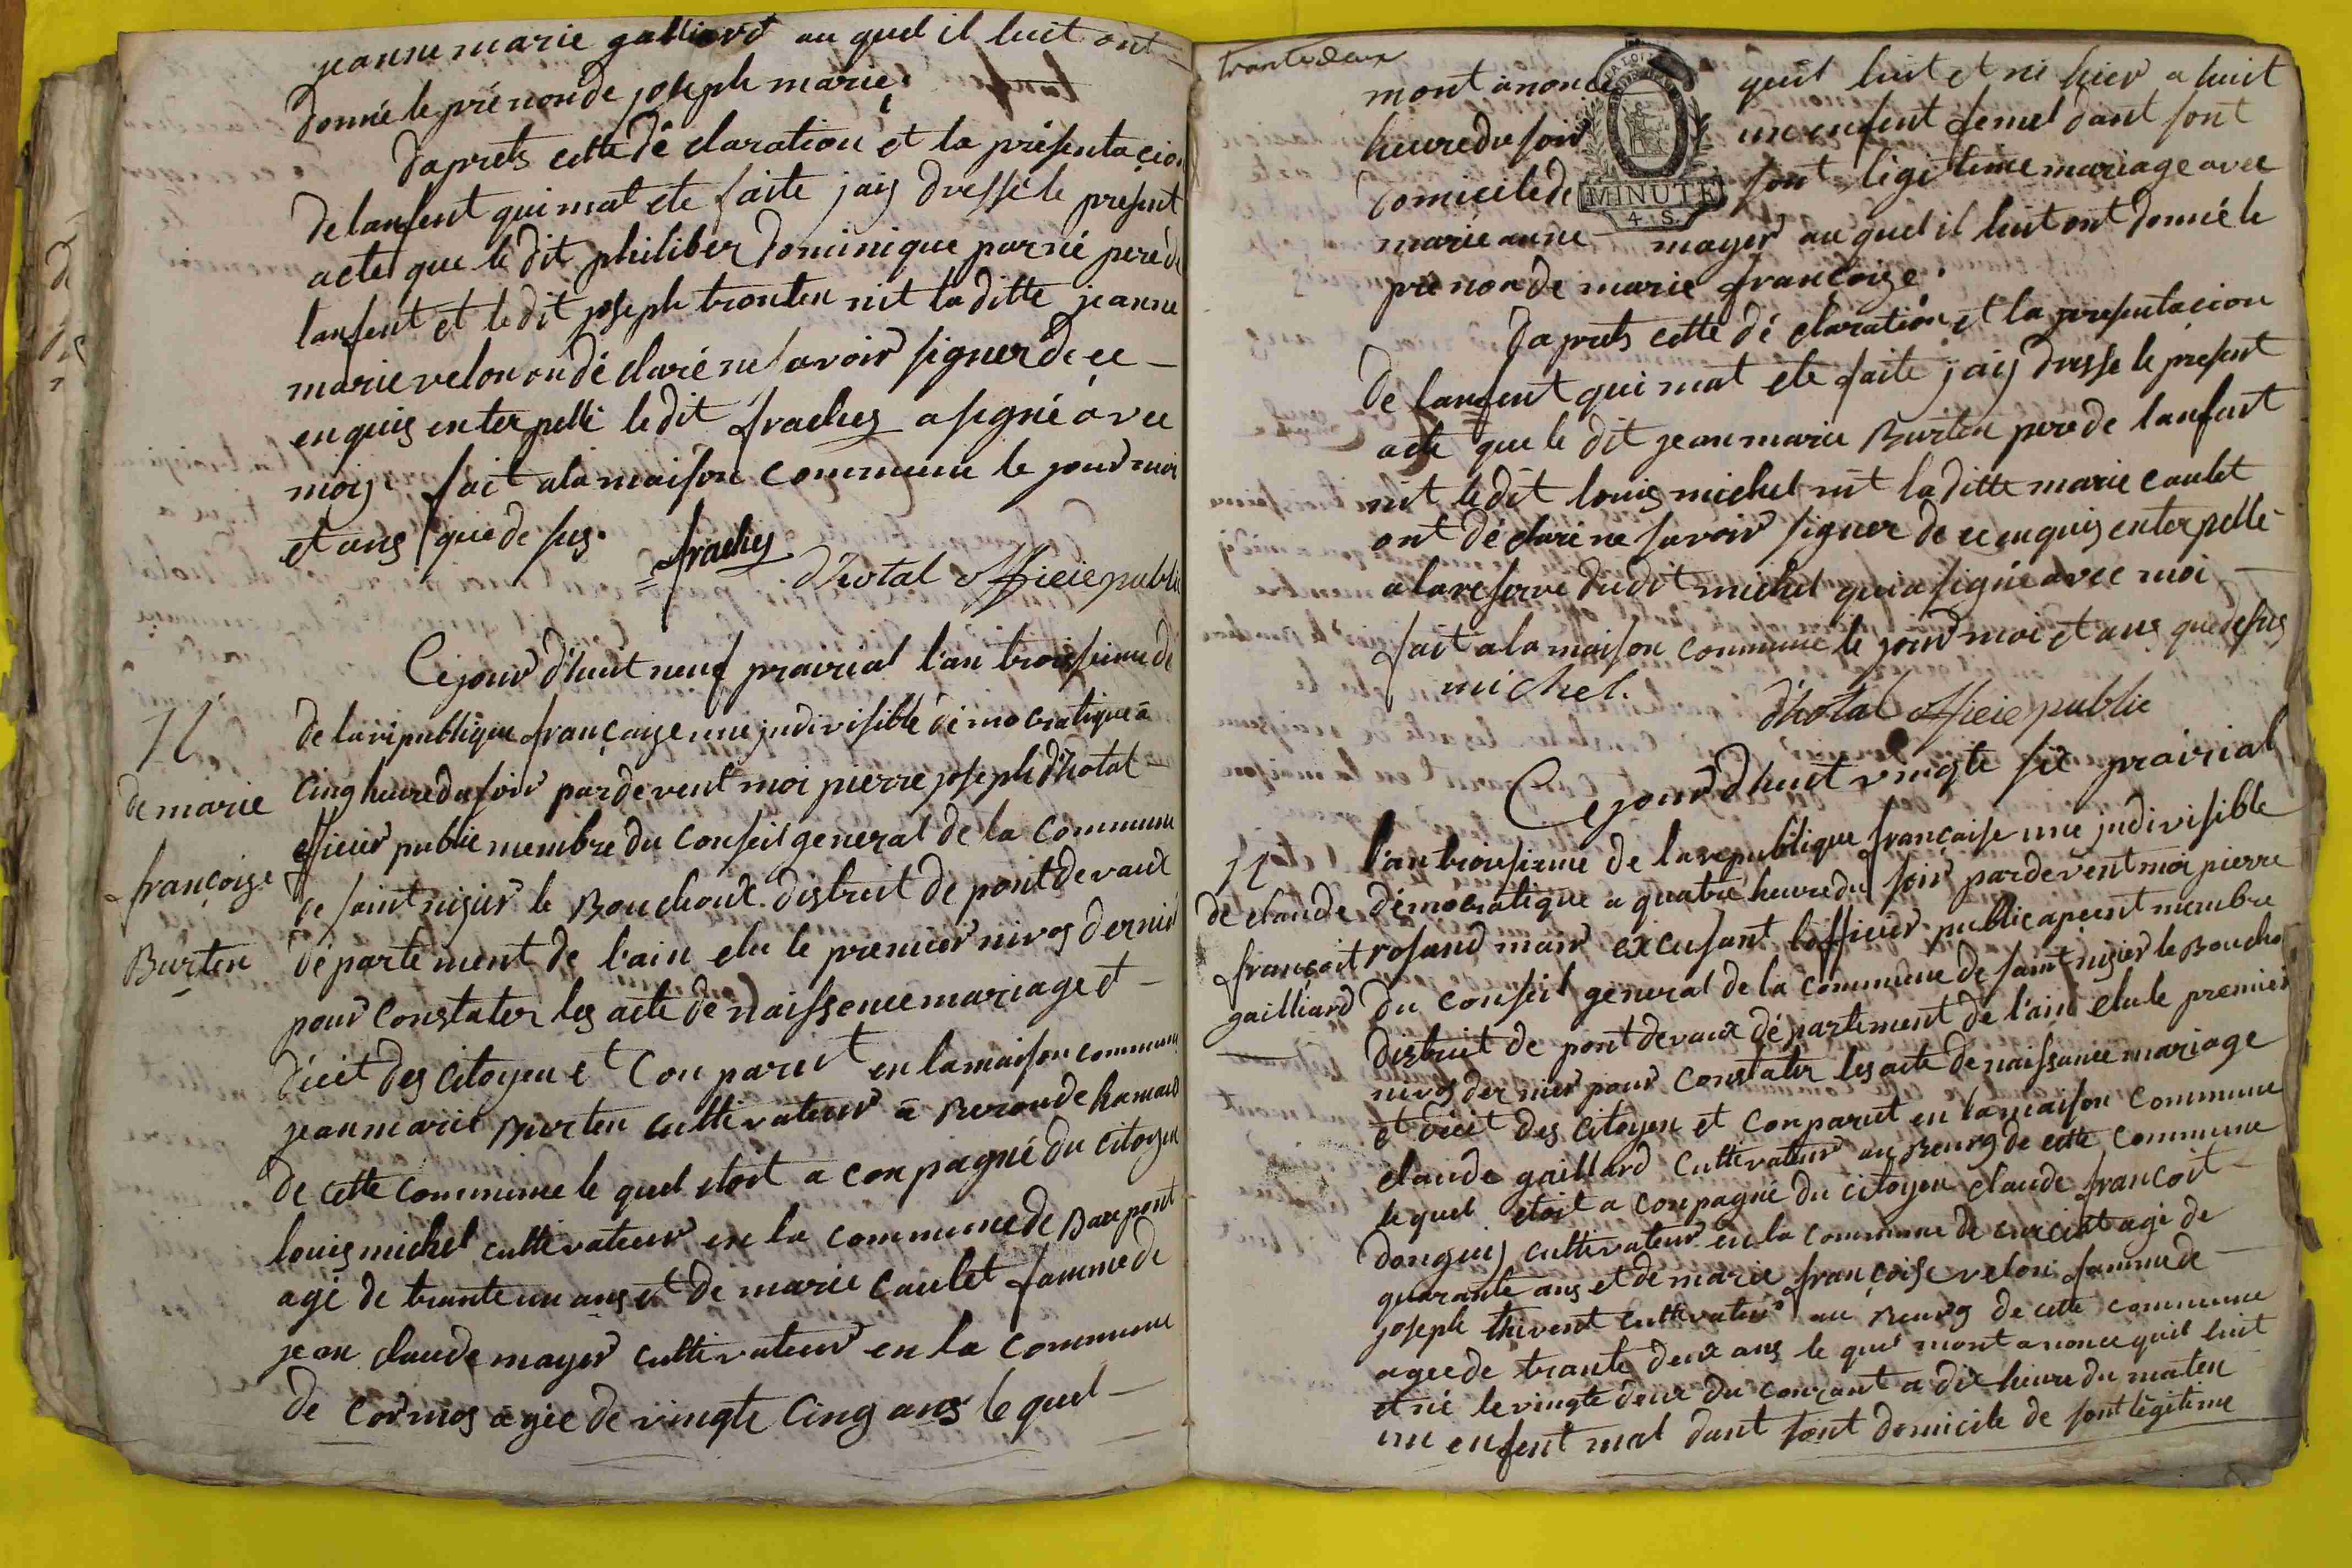 jeanne marie galliard au quel il luit ont
donné le prénon de joseph marie.
daprets cette dé claration et la présentacion
de lanfent qui mat ete faite jais dressé le present
acte que le dit philiber dominique parné pere de
lanfent et le dit joseph tronten nit la ditte jeanne
marie velon on dé claré ne savoir signer de ce
enquis enterpellé le dit fraches a signé avec
mois. fait ala maison commune le jour moi
et ans que de sus. fraches
d'hotal officie public
Ce jour d'huit neuf prairial l'an troissieme de
de la republique françaize une jndivisible démocratique à
cinq heure du soir pardevent moi pierre joseph d'hotal
officier public membre du Conseil general de la commune
de saint nisier le Bouchoux distrit de pont de vaux
département de l'ain elu le premier nivos dernié
pour constater les acte de naissence mariage et
décet des citoyen et Con parut en la maison commune
jean marie Burten cultivateur à Beronde hamaud
de cette commune le quel etoit a conpagné du citoyen
louis michel cultivateur en la commune de Baupont
agé de trante un ans et de marie caulet famme de
jean claude mayer cultivateur en la commune
de cormos agée de vingte cinq ans le quel
N
de marie
françoize
Burten
trante deux
mont anoncé quil luit et né hier a huit
heure du soir un enfent femel dant sont
domicile de sont légitime mariage avec
marie anne mayer au quel il luit ont donné le
prénon de marie françoize.
LA LOI
MINUTE
4. S.
daprets cette dé claration et la presentacion
de lanfent qui mat ete faite jais dresse le present
acte que le dit jean marie Burten pere de lanfent
nit le dit louis michel nit la ditte marie caulet
ont dé claré ne savoir signer de ce enquis enterpellé
a la reserve dudit michel qui a signé avec moi
fait a la maison commune le jour moi et ans que de sus
michel.
d'hotal officie public
Ce jour d'huit vingte six prairial
l'an troissieme de la republique française une jndivisible
démocratique a quatre heure du soir pardevent moi pierre
rosand mair excusant l'officier public apcent membre
du conseil general de la commune de saint nisier le Boucho
distrit de pont devaux département de l'ain elu le premier
nivos dernier pour constater les acte de naissance mariage
et décet des citoyen et conparut en la maison commune
claude gaillard cultivateur au Bourg de cette commune
le quel etoit a conpagné du citoyen claude françoit
donguy cultivateur en la commune de curciat agé de
quarante ans et de marie françoise velon famme de
joseph thivent cultivateur au Bourg de cette commune
agee de trante deux ans le quel mont anoncé quil luit
et né le vingte deux du courant a dix heure du maten
un enfent mal dant sont domicile de sont légitime
N
de claude
françoit
gailliard